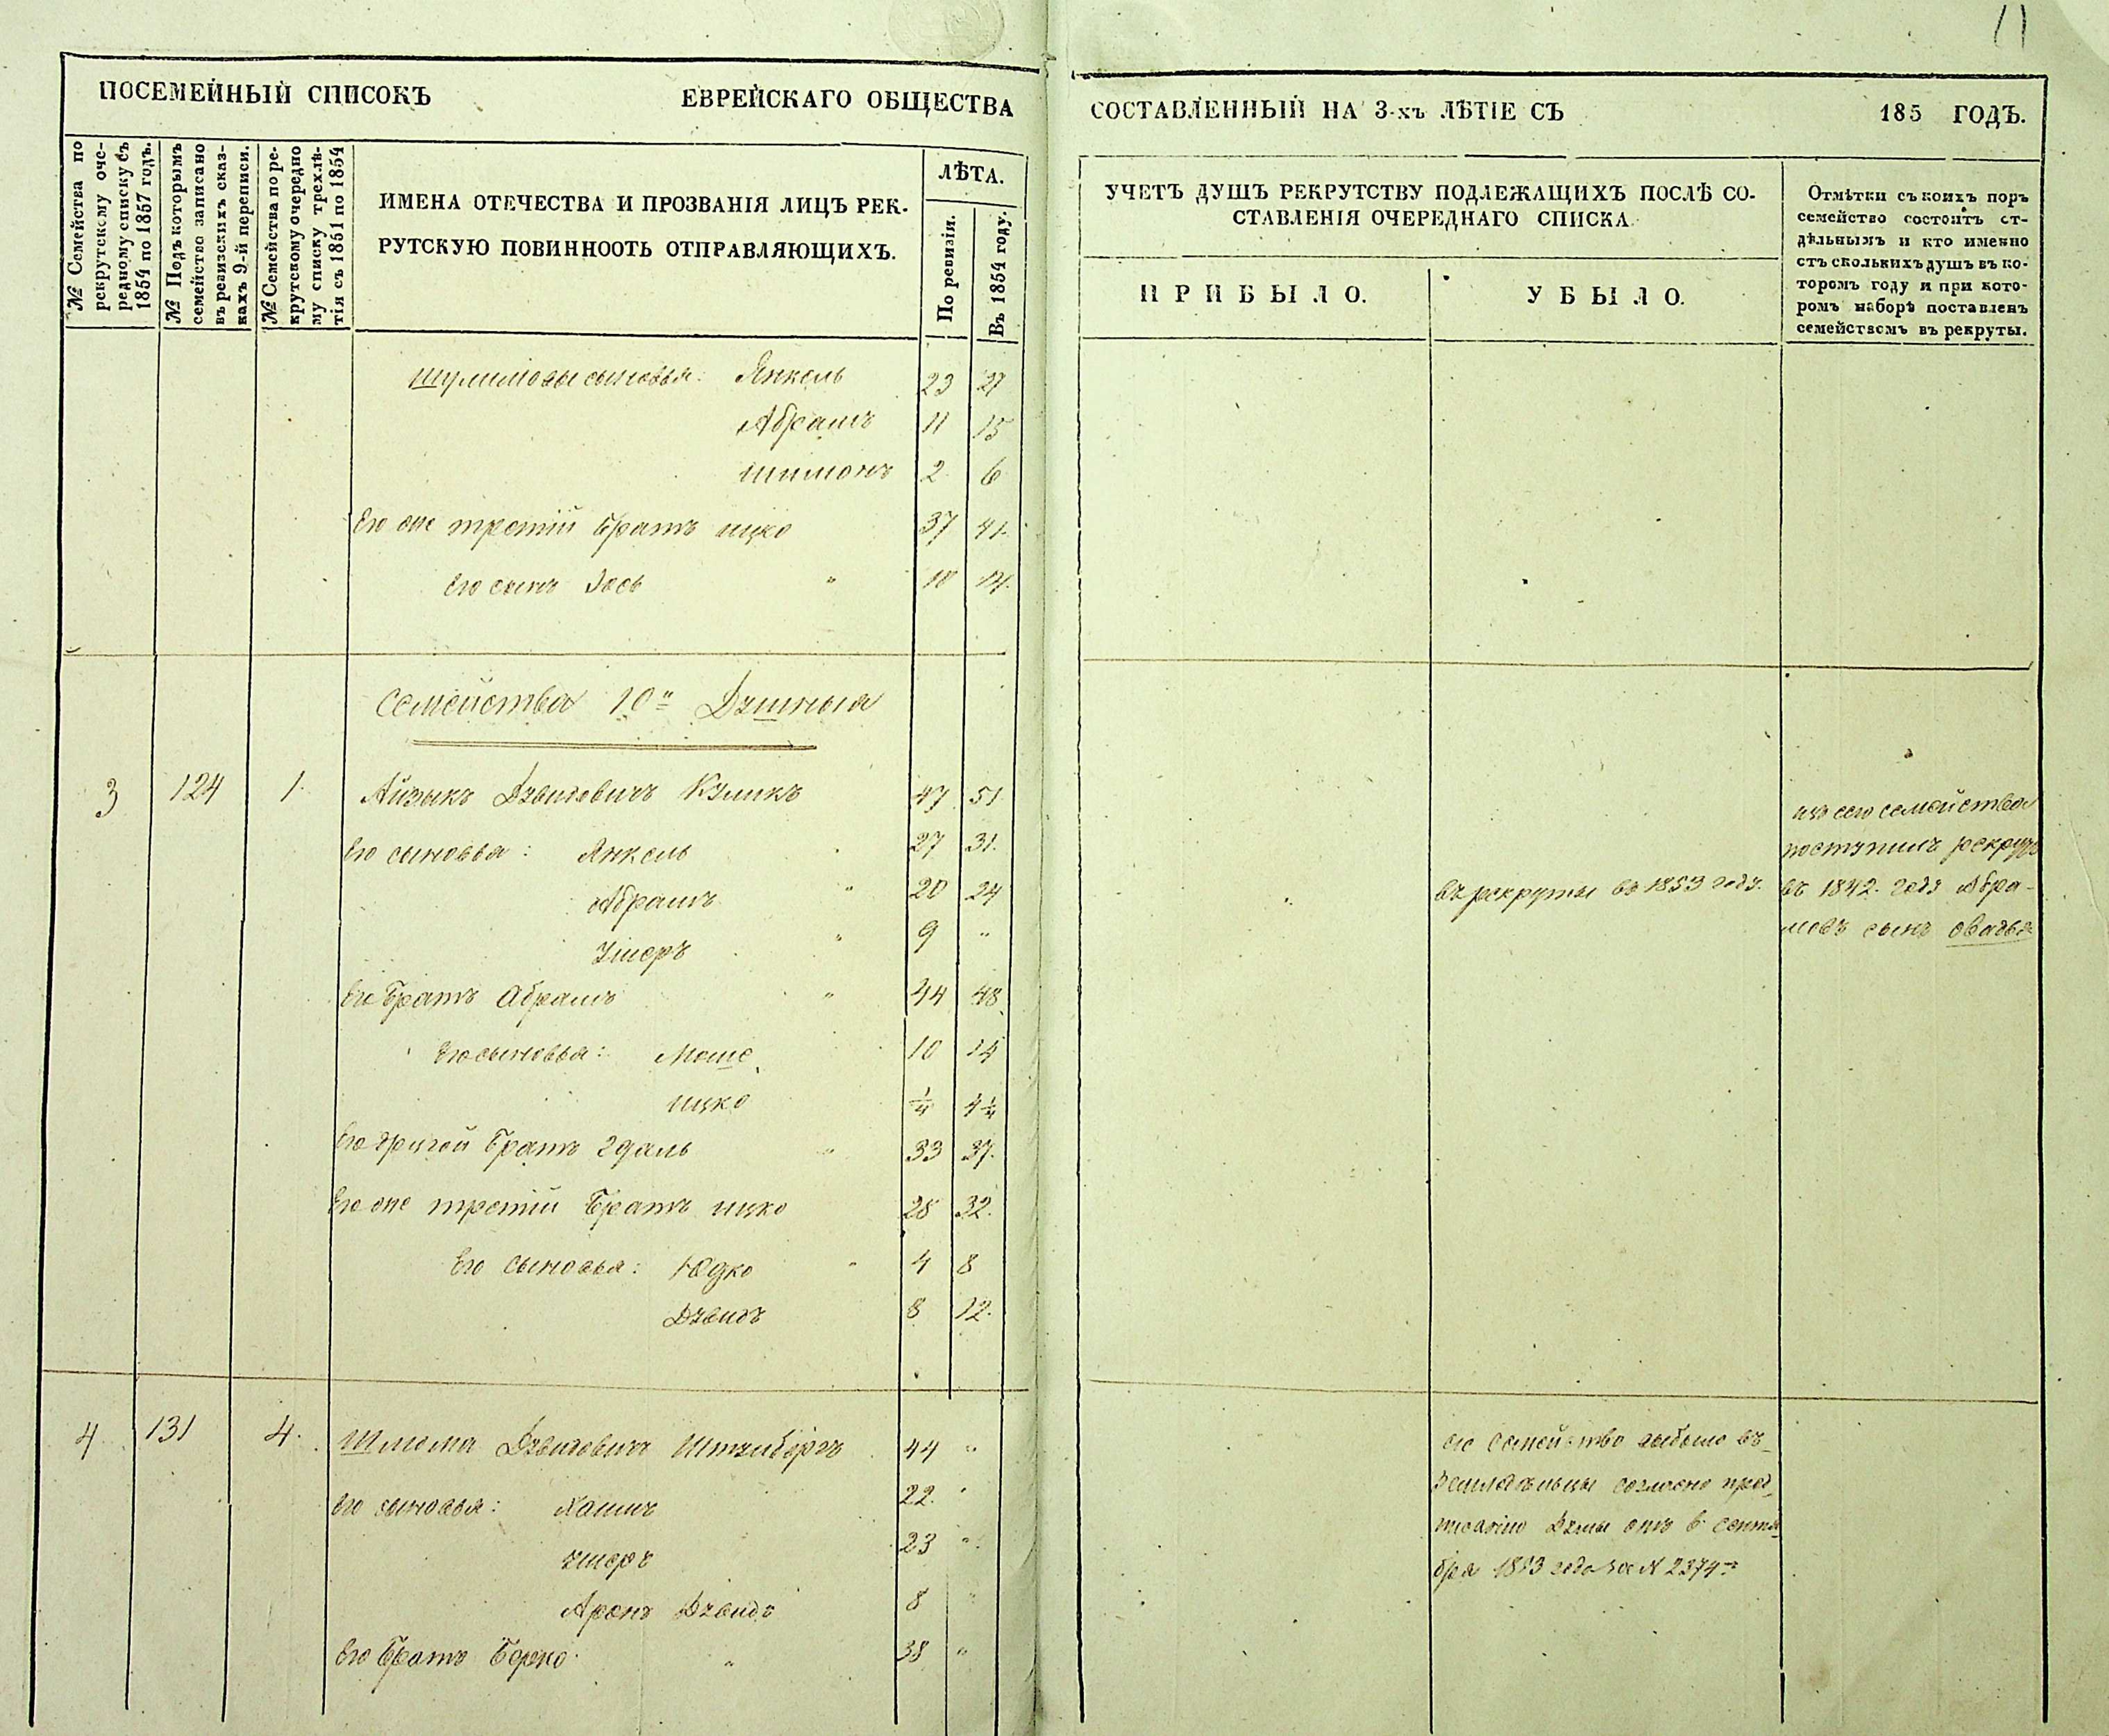 11
ПОСЕМЕЙНЫЙ СПИСОКЪ ЕВРЕЙСКАГО ОБЩЕСТВА СОСТАВЛЕННЫЙ НА 3-хъ ЛѢТІЕ СЪ 185 ГОДЪ.
№ Семейства по
рекрутскому оче-
редному списку съ
1854 по 1857 годъ.
№ Подъ которымъ
семейство записано
въ ревизскихъ сказ-
кахъ 9-й переписи.
№ Семейства по ре-
крутскому очередно
му списку трехлѣ-
тія съ 1851 по 1854
ИМЕНА ОТЕЧЕСТВА И ПРОЗВАНІЯ ЛИЦЪ РЕК-
РУТСКУЮ ПОВИННООТЬ ОТПРАВЛЯЮЩИХЪ.
ЛѢТА.
По ревизіи.
Въ 1854 году.
УЧЕТЪ ДУШЪ РЕКРУТСТВУ ПОДЛЕЖАЩИХЪ ПОСЛѢ СО-
СТАВЛЕНІЯ ОЧЕРЕДНАГО СПИСКА.
ПРИБЫЛО.
УБЫЛО.
Отмѣтки съ коихъ поръ
семейство состоитъ от-
дѣльнымъ и кто именно
стъ сколькихъ душъ въ ко-
торомъ году и при кото-
ромъ наборѣ поставленъ
семействомъ въ рекруты.
Шулимовы сыновья: Янкель 23 27
Абрамъ 11 15
Шимонъ 2 6
Его же третій братъ Ицко 37 41.
Его сынъ Іось " 10 14.
Семейства 10" Душныя
3 124 1. Айзыкъ Дувидовичъ Куликъ 47 51.
Его сыновья: Янкель 27 31.
Абрамъ " 20 24
Ушеръ " 9 "
Его братъ Абрамъ " 44 48
Его сыновья: Моше 10 14
Ицко 1/4 4 1/4
Его другой братъ Эдаль " 33 37.
Его же третій братъ Ицко 28 32.
Его сыновья: Юдко " 4 8
Дувидъ 8 12.
въ рекруты въ 1853 году.
изъ сего семейства
поступилъ рекрутъ
въ 1842. году Абра-
мовъ сынъ Овадья
4 131 4. Шлема Дувидовичъ Штэинбергъ 44 "
Его сыновья: Хаимъ 22. "
Ушеръ 23 "
Аронъ Дувидъ 8 "
Его братъ Берко " 38 "
сіе семейство выбыло въ
земледѣльцы согласно пред-
писанію Думы отъ 6 сентя-
бря 1853 года за N 2374